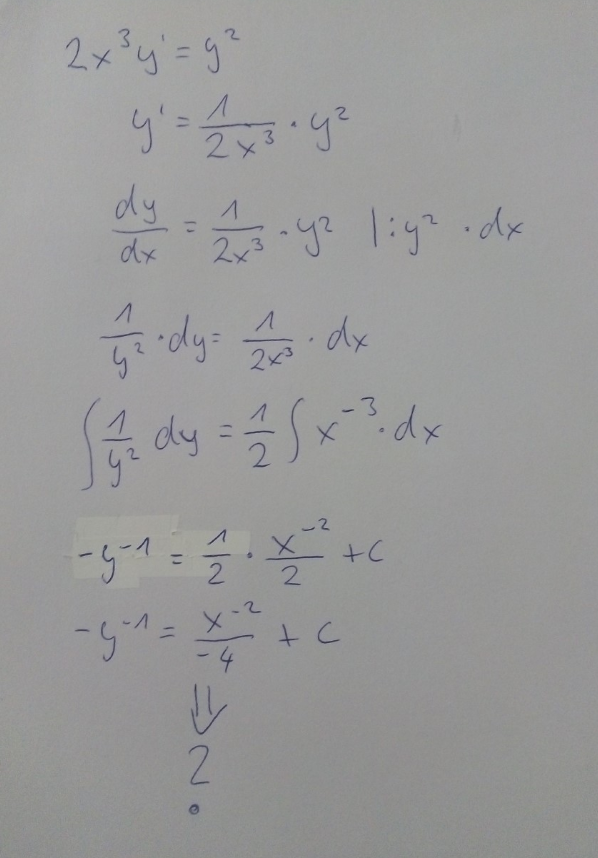 2x³y' = y²
y' = 1/(2x³) · y²
dy/dx = 1/(2x³) · y² | : y² · dx
1/y² · dy = 1/(2x³) · dx
∫ 1/y² dy = 1/2 ∫ x⁻³ · dx
-y⁻¹ = 1/2 · x⁻²/2 + C
-y⁻¹ = x⁻²/-4 + C
⇓
?